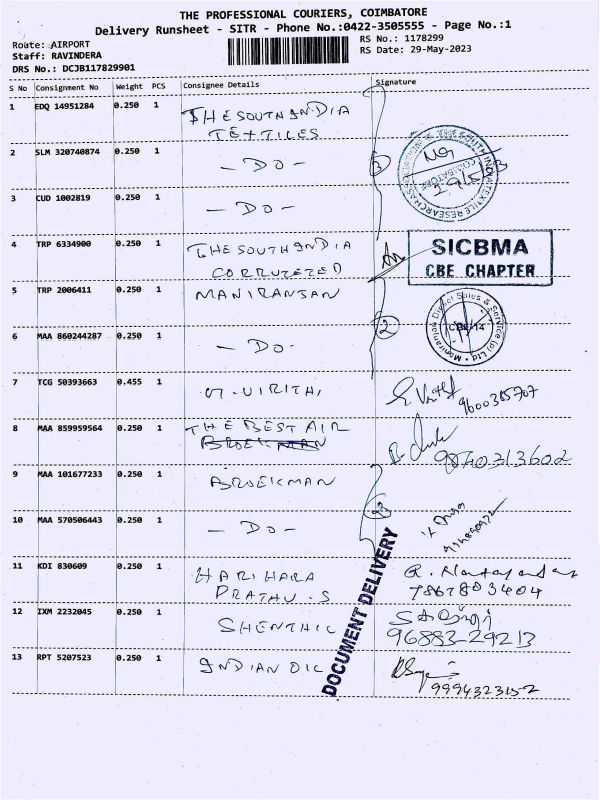 THE PROFESSIONAL COURIERS, COIMBATORE
Delivery Runsheet - SITR - Phone No.:0422-3505555 - Page No.:1
Route: AIRPORT
RS No.: 1178299
Staff: RAVINDERA
RS Date: 29-May-2023
DRS No.: DCJB117829901
S No Consignment No Weight PCS Consignee Details Signature
1 EDQ 14951284 0.250 1 THE SOUTH INDIA
TEXTILES
2 SLM 320740874 0.250 1 - DO -
3 CUD 1002819 0.250 1 - DO -
3
COIMBATORE
29/5/23
4 TRP 6334900 0.250 1 THE SOUTH INDIA
CORRUTETED
SICBMA
CBE CHAPTER
5 TRP 2006411 0.250 1 MANIRANJAN
6 MAA 860244287 0.250 1 - DO -
2
Maniranjan Diesel Sales & Service (p) Ltd
CBE-14
7 TCG 50393663 0.455 1 VIRITHI
8 MAA 859959564 0.250 1 THE BEST AIR
BROEKMAN
9 MAA 101677233 0.250 1 BROEKMAN
10 MAA 570506443 0.250 1 - DO -
DOCUMENT DELIVERY
11 KDI 830609 0.250 1 HARI HARA
PRATHU.S
7867803404
12 IXM 2232045 0.250 1 SHENTHIL
96883-29213
13 RPT 5207523 0.250 1 INDIAN OIL
9994323152